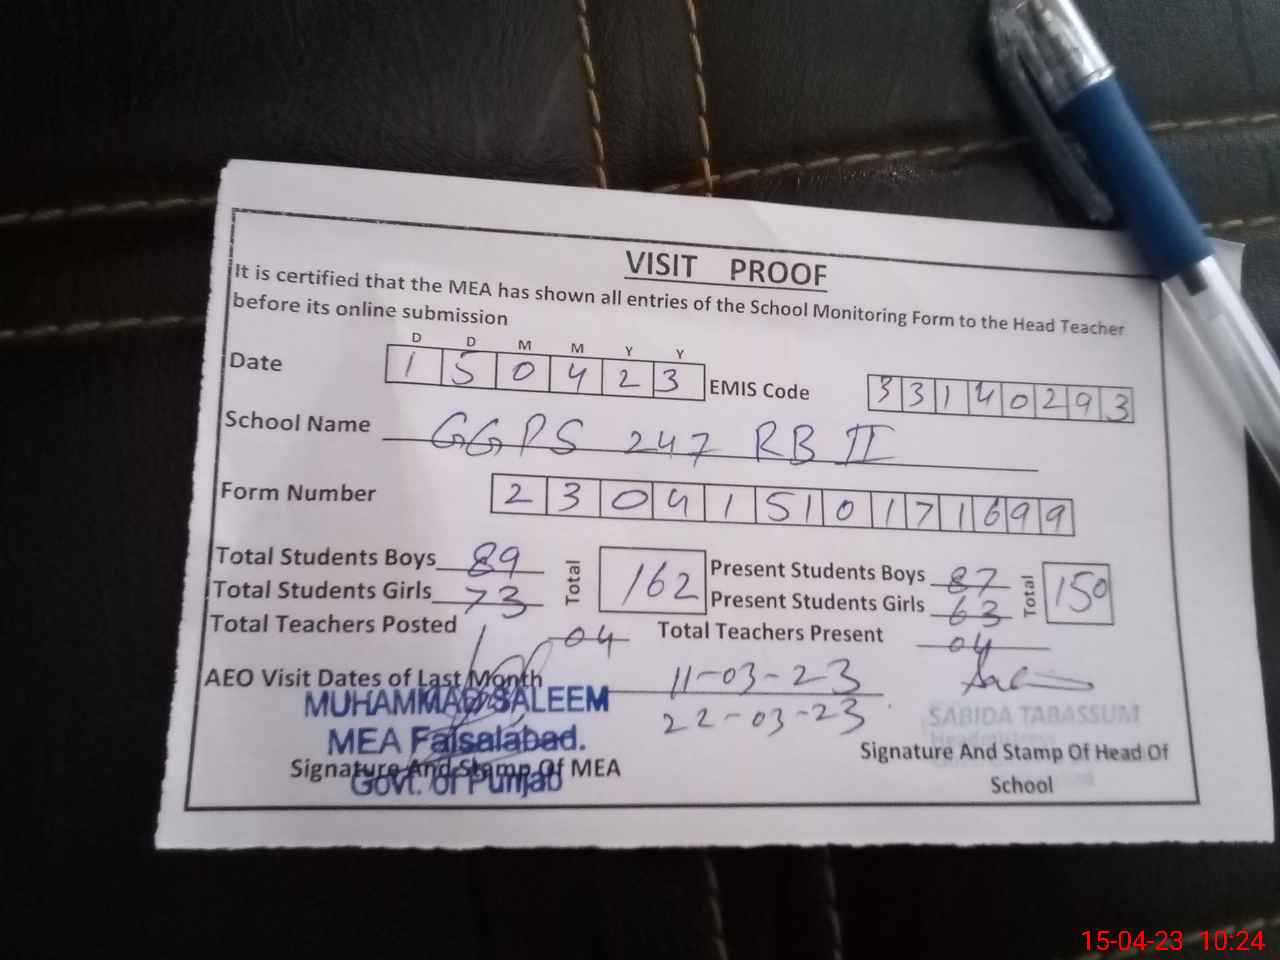 VISIT PROOF
It is certified that the MEA has shown all entries of the School Monitoring Form to the Head Teacher
before its online submission
D D M M Y Y
Date 1 5 0 4 2 3 EMIS Code 3 3 1 4 0 2 9 3
School Name GGPS 247 RB II
Form Number 2 3 0 4 1 5 1 0 1 7 1 6 9 9
Total Students Boys 89 Total 162 Present Students Boys 87 Total 150
Total Students Girls 73 Present Students Girls 63
Total Teachers Posted 04 Total Teachers Present 04
AEO Visit Dates of Last Month 11-03-23
22-03-23
MUHAMMAD SALEEM
MEA Faisalabad.
Govt. of Punjab
Signature And Stamp Of MEA
SABIDA TABASSUM
Headmistress
Signature And Stamp Of Head Of
School
15-04-23 10:24